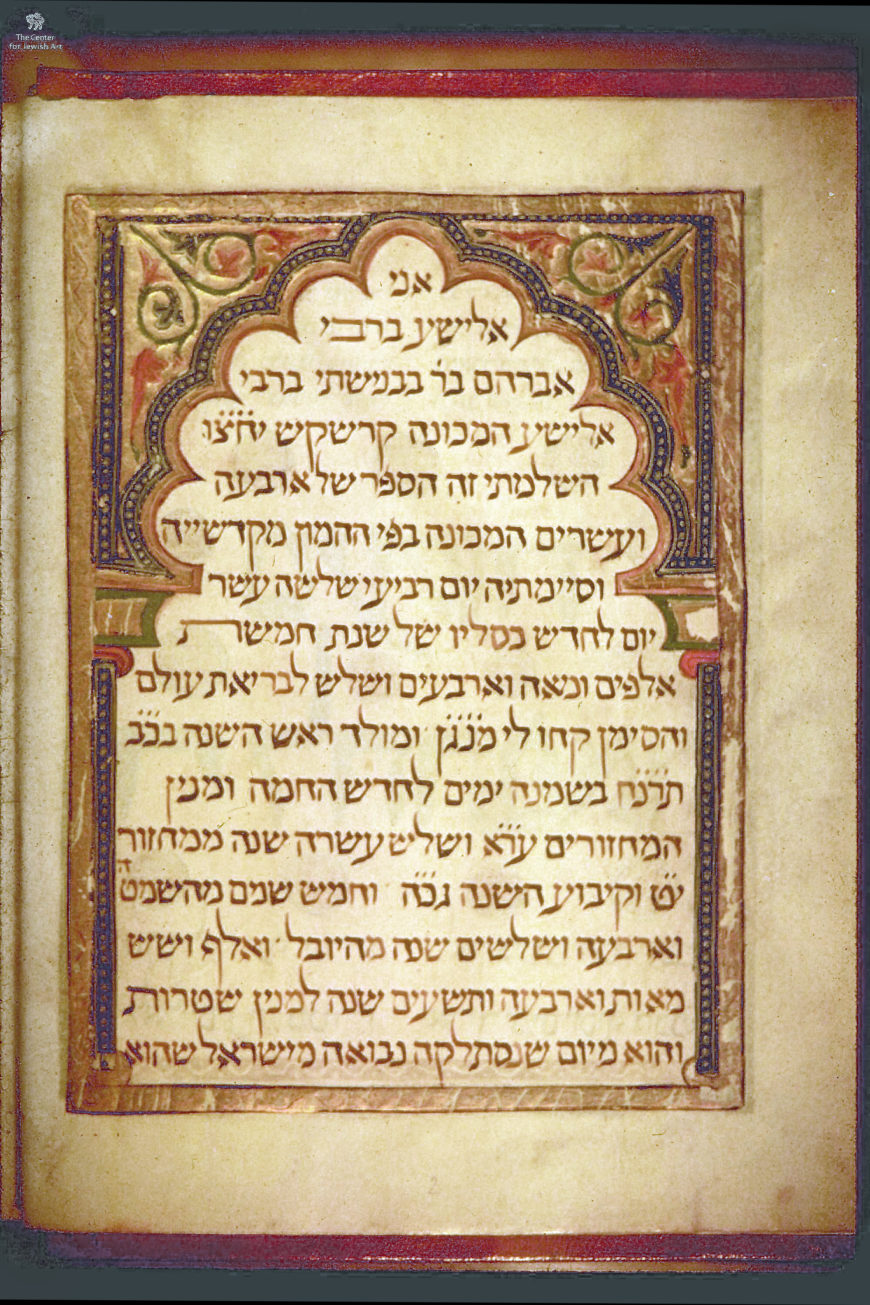 The Center
for Jewish Art
אני
אלישע ברבי
אברהם בר בבנישתי ברבי
אלישע המכונה קרשקש יחצו
השלמתי זה הספר של ארבעה
ועשרים המכונה בפי ההמון מקדשייה
וסיימתיה יום רביעי שלשה עשר
יום לחדש כסליו של שנת חמישת
אלפים ומאה וארבעים ושלש לבריאת עולם
והסימן קחו לי מנגן ומולד ראש השנה בכב
תרנח בשמנה ימים לחדש החמה ומנין
המחזורים ערא ושליש עשרה שנה ממחזור
יט וקיבוע השנה גכה וחמיש שנים מהשמטה
וארבעה ושלישים שנה מהיובל ואלף ושש
מאות וארבעה ותשעים שנה למנין שטרות
והוא מיום שנסתלקה נבואה מישראל שהוא